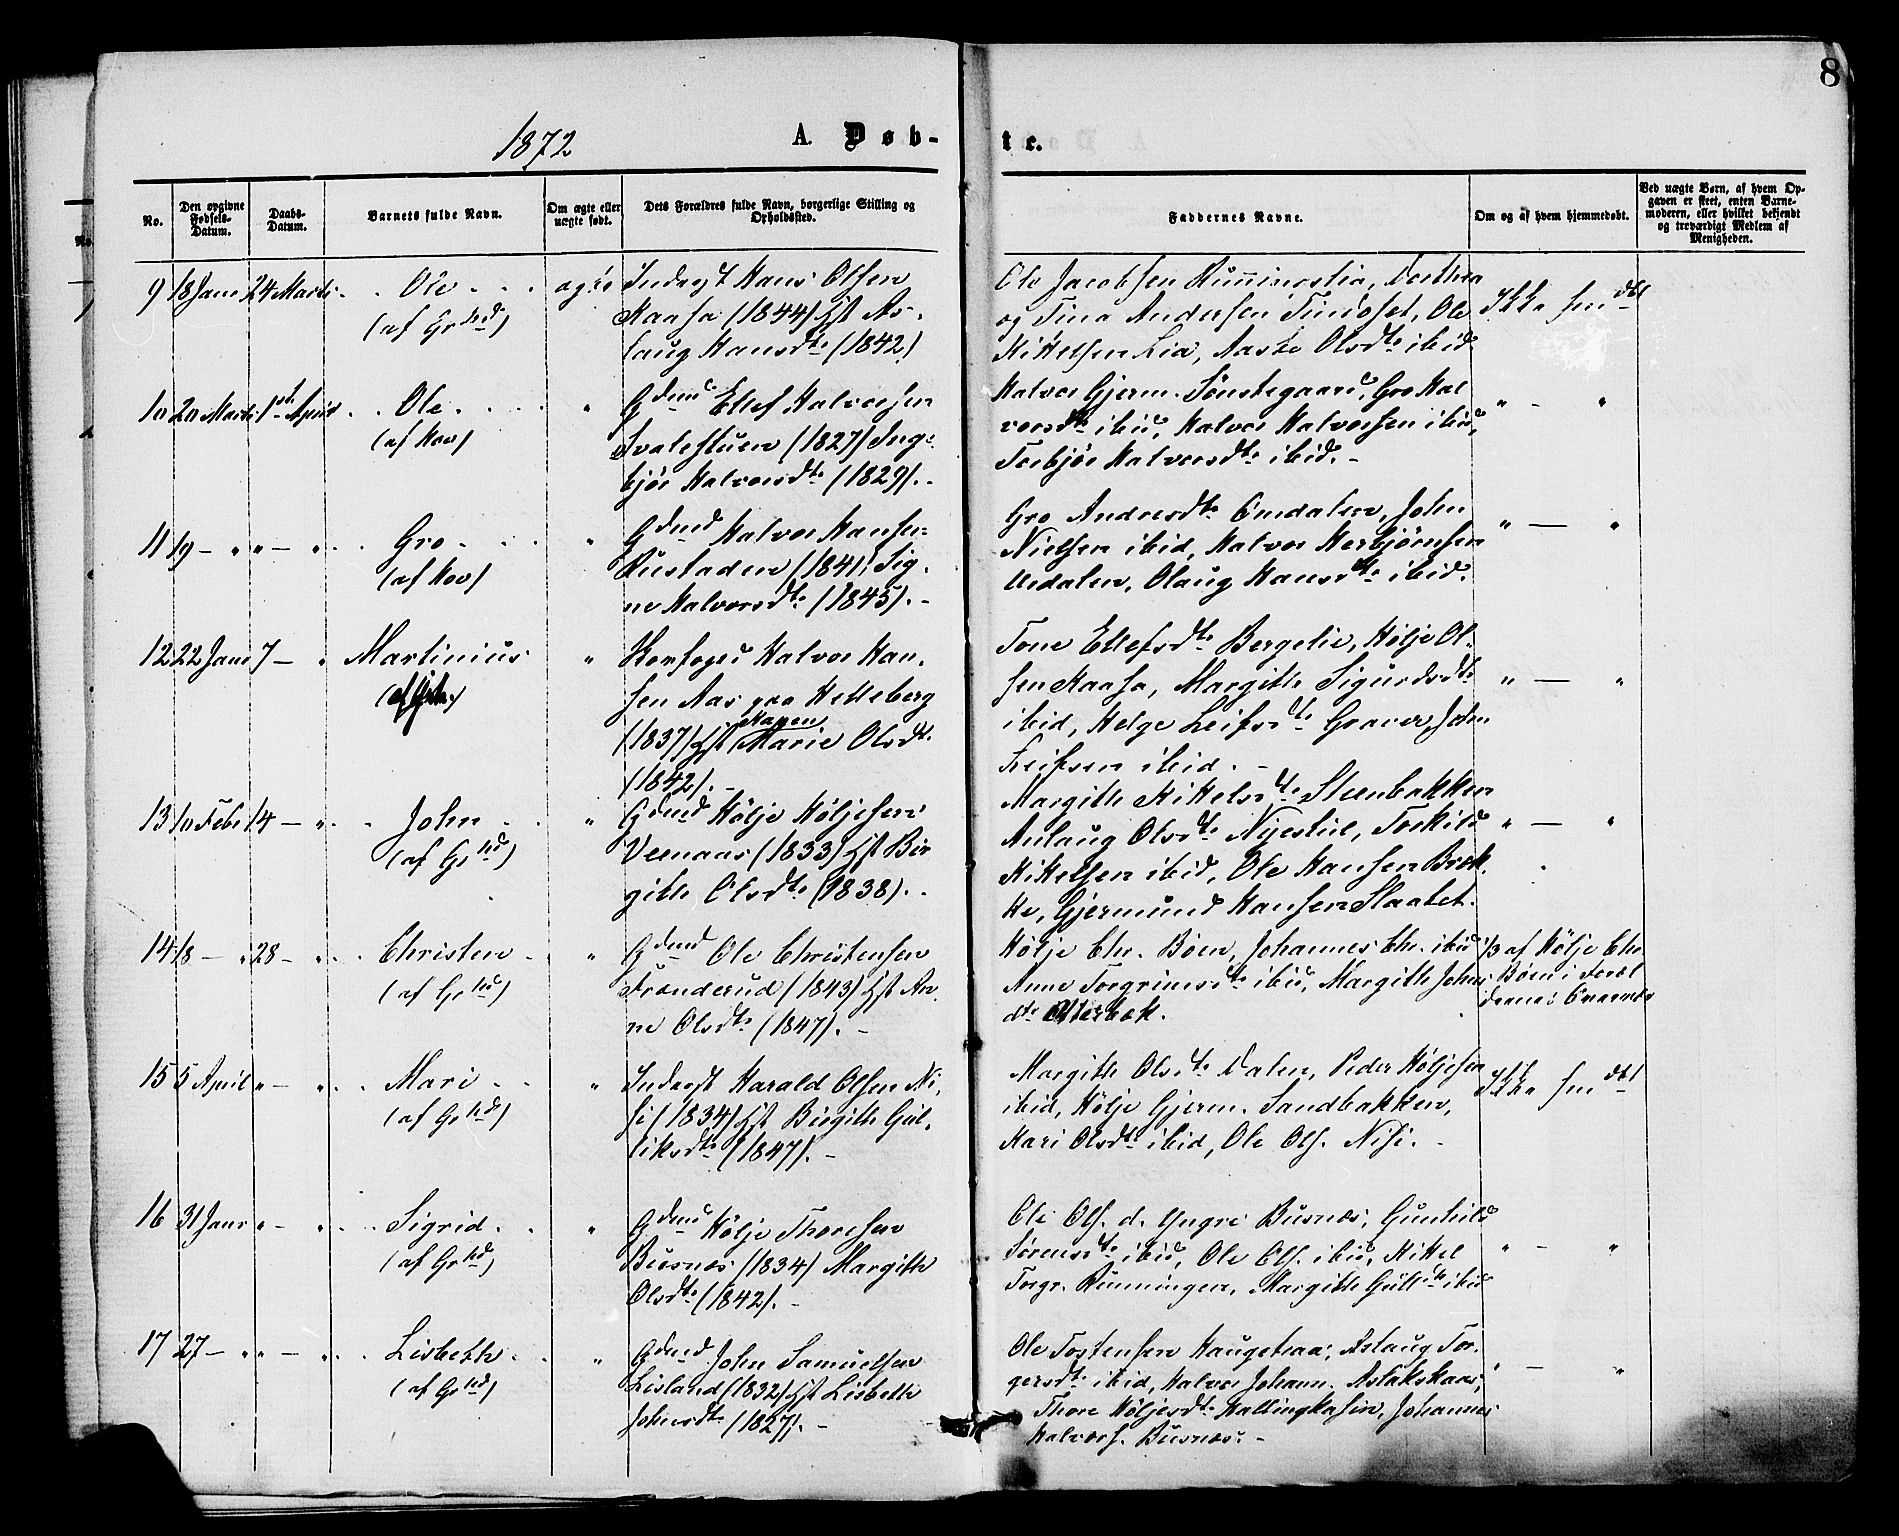 8
1872 A. Døb- te.
No. Den opgivne Fødsels-Datum. Daabs-Datum. Barnets fulde Navn. Om ægte eller uægte født. Dets Forældres fulde Navn, borgerlige Stilling og Opholdssted. Faddernes Navne. Om og af hvem hjemmedøbt. Ved uægte Børn, af hvem Opgaven er skeet, enten Barnemoderen, eller hvilket bekjendt og troværdigt Medlem af Menigheden.
9 18 Janr 24 Marts Ole ægte Inderst Hans Olsen
(af Grnd) Kaasa (1844) Hst As-
laug Hansdtr (1842)
Ole Jacobsen Runningslia, Dorthea
og Tina Andersen Tinidset, Ole
Kittelsen Lia, Aaste Olsdtr ibid.
Ikke hmdbt
10 20 Marts 1st April Ole " Gdmd Ellef Halvorsen
(af Hov) Svalestuen (1827) Ing-
bjør Halvorsdtr (1829).-
Halvor Gjerm. Sønstegaard, Gro Hal
vorsdtr ibid, Halvor Halvorsen ibid,
Torbjør Halvorsdtr ibid.-
" - "
11 19 - " " - " Gro " Gdmd Halvor Hansen
(af Hov) Rustaden (1841) Sig-
ne Halvorsdtr (1845).-
Gro Andresdtr Omdalen, John
Nielsen ibid, Halvor Herbjørnsen
Uvdalen, Olaug Hansdtr ibid.
" - "
12 22 Janr 7 - " Martinius " Halvor Han-
sen Aas paa Hetteberg
(1837) Hst Karen Marie Olsdtr
(1842).-
Tone Ellefsdtr Bergelie, Hølje Ol-
sen Kaasa, Margith Sigurdsdtr
ibid, Helge Leifsdtr Graver, John
Leifsen ibid.-
" - "
13 10 Febr 14 - " John " Gdmd Hølje Høljesen
(af Grnd) Veenaas (1833) Hst Bir
gith Olsdtr (1838).-
Margith Kittelsdtr Steenbakken
Anlaug Olsdtr Nyestul, Torkild
Kittelsen ibid, Ole Hansen Bræk
ke, Gjermund Hansen Slaatet.
" - "
14 18 - " 28 - " Christen " Gdmd Ole Christensen
(af Grnd) Frønderud (1843) Hst An-
ne Olsdtr (1847).-
Hølje Chr. Bøen, Johannes Chr. ibid
Anne Torgrimsdtr ibid, Margith Johns
dtr Otterbæk.
1/3 af Hølje Chr.
Bøen i Foræl
drenes Nærvær
15 5 April " - " Mari " Inderst Harald Olsen Ni-
(af Grnd) si (1834) Hst Birgith Gul-
liksdtr (1847).-
Margith Olsdtr Dalen, Peder Høljesen
ibid, Hølje Gjerm. Sandbakken,
Kari Olsdtr ibid, Ole Ols. Nisi.-
Ikke hmdbt
16 31 Janr " - " Sigrid " Gdmd Hølje Thoresen
(af Grnd) Busnæs (1834) Margith
Olsdtr (1842).-
Ole Ols. d. Yngre Busnæs, Gunhild
Sørensdtr ibid, Ole Ols. ibid, Kittel
Torgr. Runningen, Margith Gulldtr ibid
" - "
17 27 - " " - " Lisbeth " Gdmd John Samuelsen
(af Grnd) Lisland (1832) Hst Lisbeth
Johnsdtr (1827).-
Ole Tostensen Haugetraa, Aslaug Tor-
gersdtr ibid, Halvor Johann. Aslakskaas,
Thore Høljesdtr Hallingkasin, Johannes
Halvors. Busnæs.-
" - "